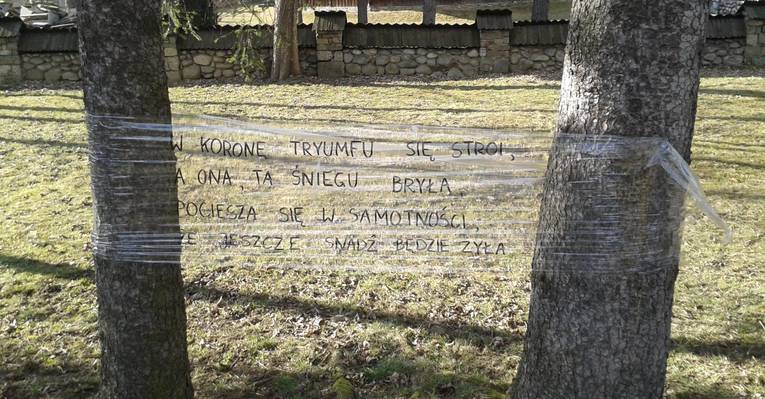 W KORONĘ TRYUMFU SIĘ STROI,
A ONA, TA ŚNIEGU BRYŁA,
POCIESZA SIĘ W SAMOTNOŚCI,
ŻE JESZCZE SNADŹ BĘDZIE ŻYŁA